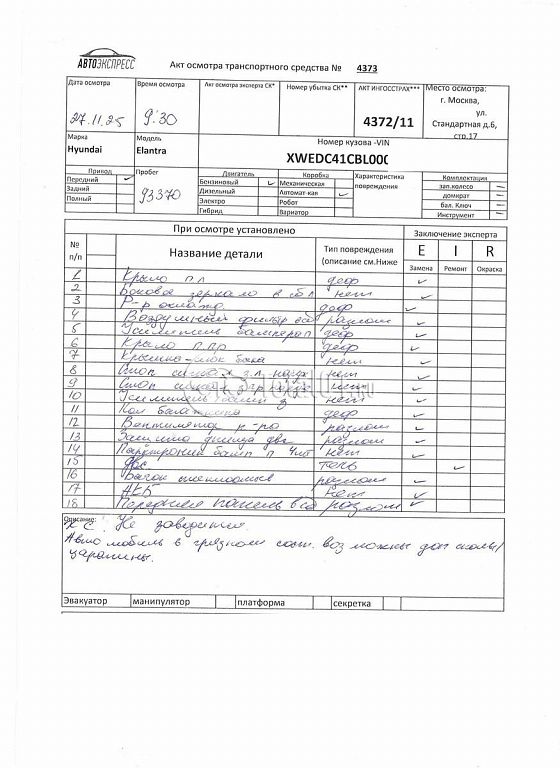 АВТОЭКСПРЕСС
Акт осмотра транспортного средства № 4373
Дата осмотра Время осмотра Акт осмотра эксперта СК* Номер убытка СК** АКТ ИНГОССТРАХ*** Место осмотра:
27.11.25 9:30 4372/11 г. Москва, ул. Стандартная д.6, стр.17
Марка Модель Номер кузова -VIN
Hyundai Elantra XWEDC41CBL00(
Привод Пробег Двигатель Коробка Характеристика повреждения Комплектация
Передний 93370 Бензиновый Механическая зап.колесо
Задний Дизельный Автомат-кая домкрат
Полный Электро Робот бал. Ключ
Гибрид Вариатор Инструмент
При осмотре установлено Заключение эксперта
№ п/п Название детали Тип повреждения (описание см.Ниже E I R
Замена Ремонт Окраска
1 Крыло п л деф
2 Боковое зеркало в сб л нет
3 Р-р деф
4 Воздушный фильтр разлом
5 Усилитель бампера п деф
6 Крыло п пр деф
7 Крышка бака нет
8 Стоп сигнал з.л. нет
9 Стоп сигнал з пр нет
10 Усилитель бамп з нет
11 Пол багажника деф
12 Вентилятор к-ра разлом
13 Защита днища две разлом
14 Парктроник бамп п 4шт нет
15 двс течь
16 Бачок разлом
17 АКБ нет
18 Передняя панель в сб разлом
Описание:
Не заводится.
Автомобиль в грязном сост. возможны доп сколы/
царапины.
Эвакуатор манипулятор платформа секретка